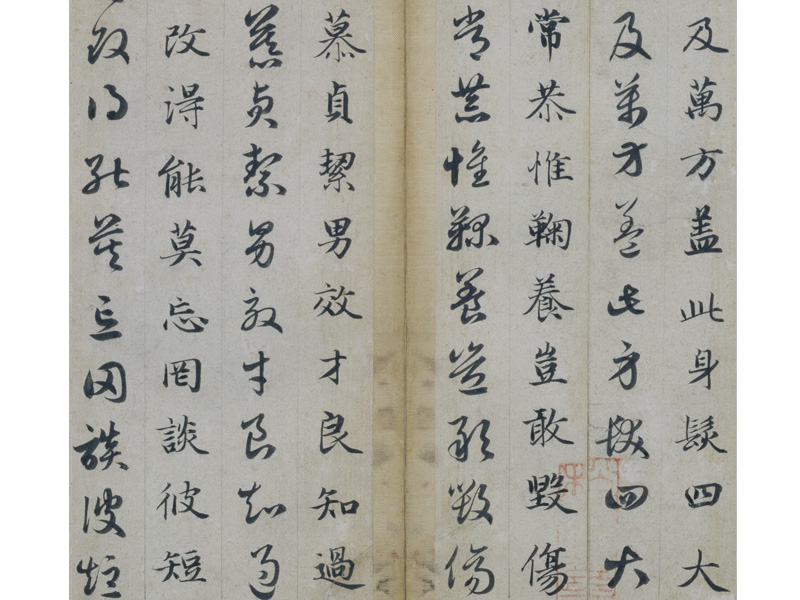 及萬方蓋此身髮四大
及萬方蓋此身髮四大
常恭惟鞠養豈敢毀傷
常恭惟鞠養豈敢毀傷
慕貞絜男效才良知過
慕貞絜男效才良知過
改得能莫忘罔談彼短
改得能莫忘罔談彼短